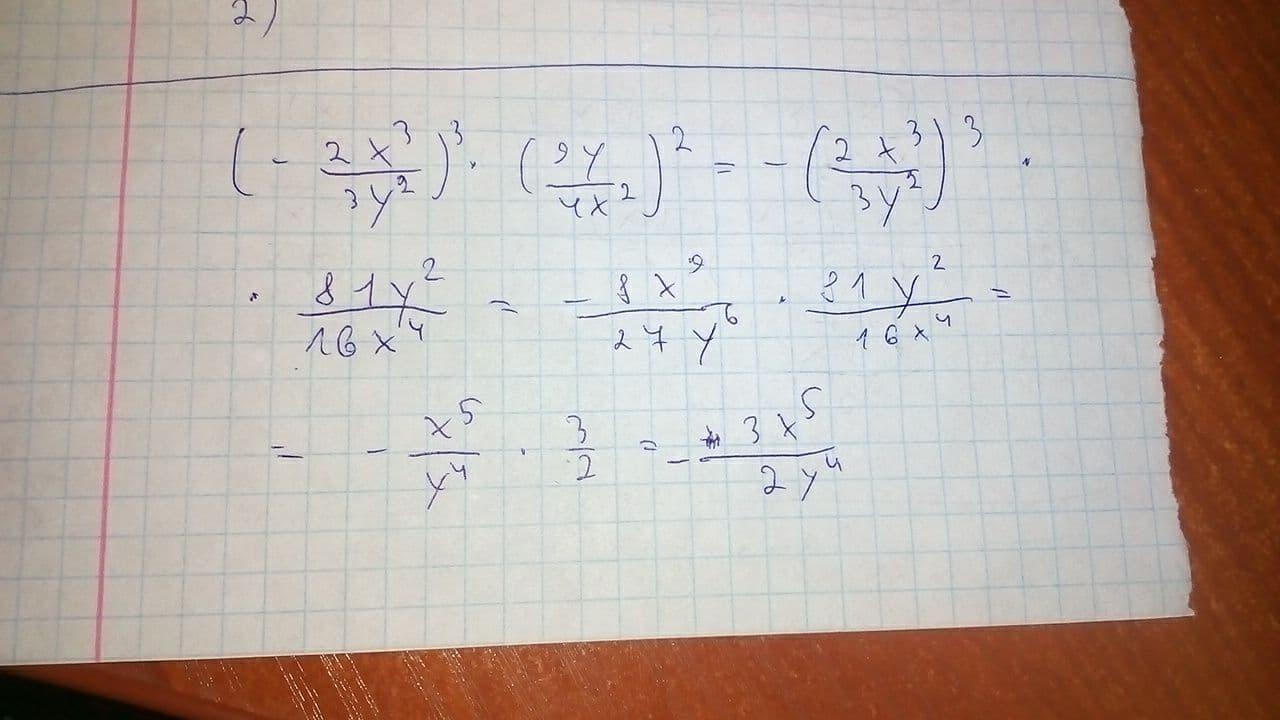 2)
(- 2x³/3y²)³ · (9y/4x²)² = - (2x³/3y²)³ ·
· 81y²/16x⁴ = - 8x⁹/27y⁶ · 81y²/16x⁴ =
= - x⁵/y⁴ · 3/2 = - 3x⁵/2y⁴